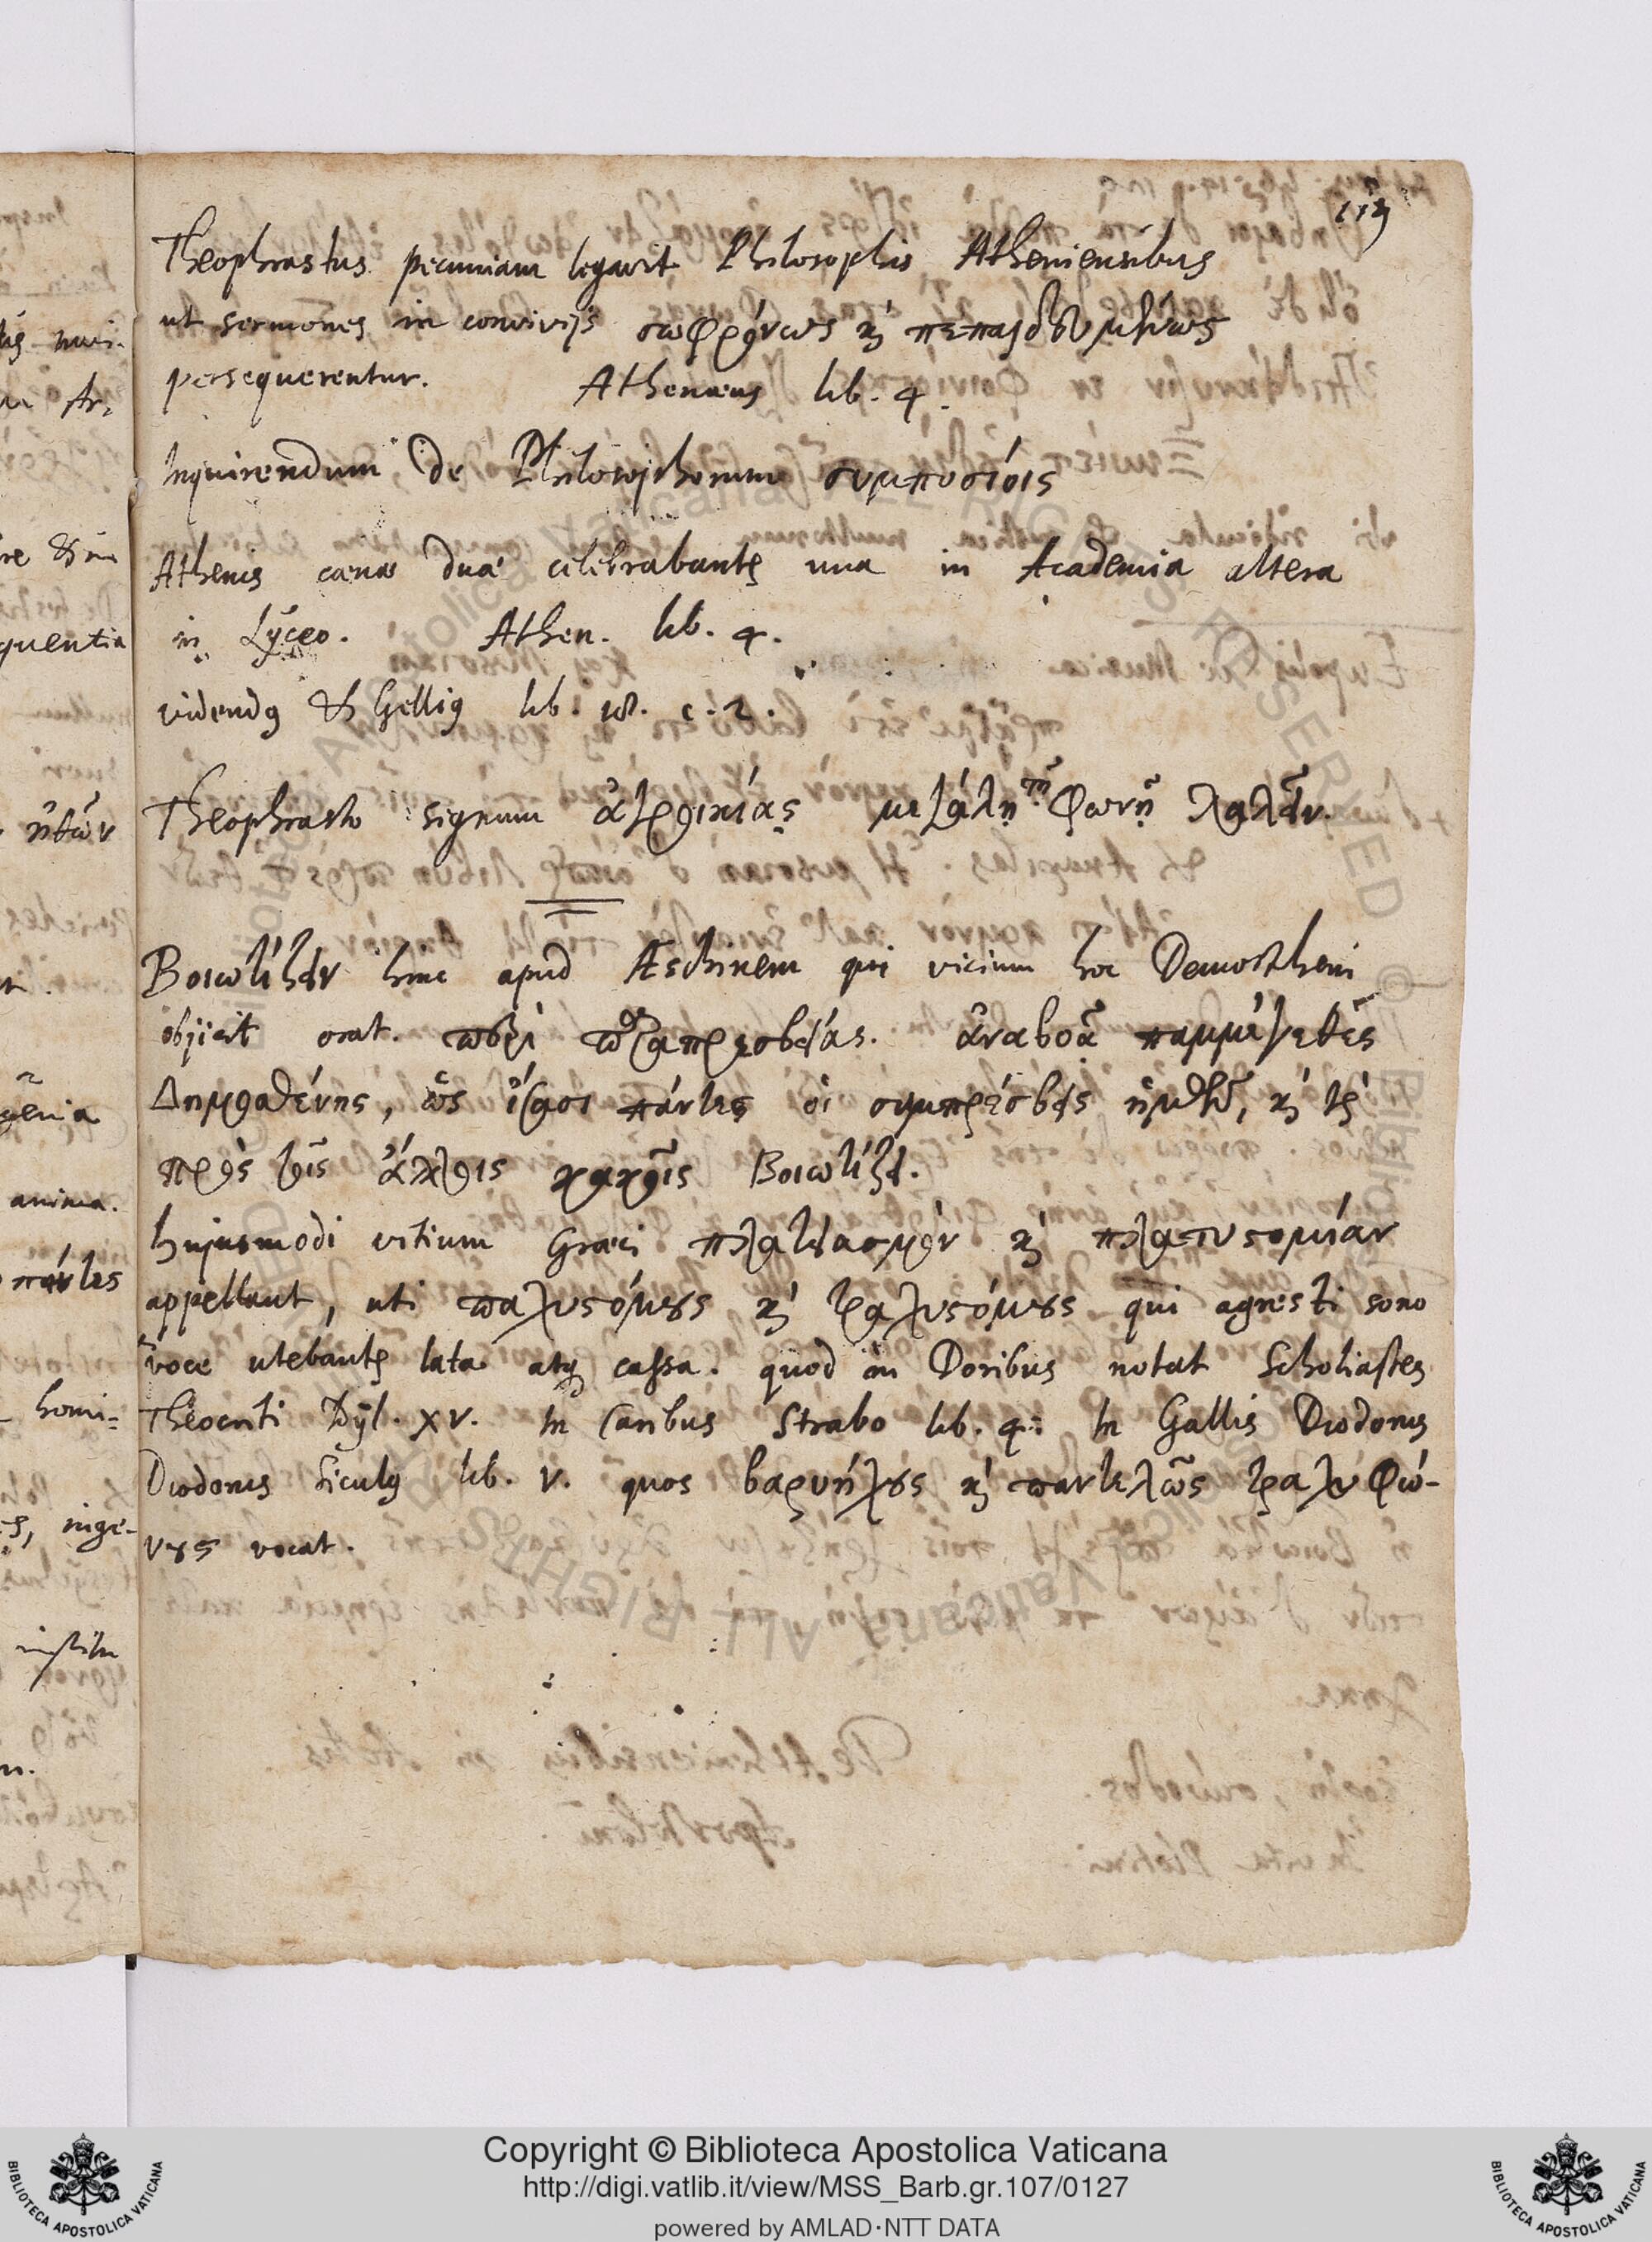 Theophrastus pecuniam legavit Philosophis Atheniensibus
ut sermones in convivijs σωφρόνως κỳ πεπαιδευμένως
persequerentur. Athenæus lib. 4.
Inquirendum de Philosophorum συμποσίοις
Athenis cœnæ duæ celebrabantr una in Academia altera
in Lyceo. Athen. lib. 4.
videndus & Gellius lib. 18. c. 2.
Theophrasto signum ἀγροικίας μεγάλῃ τῇ φωνῇ λαλεῖν.
Βοιωτίζειν hinc apud Æschinem qui vicium hoc Demostheni
objicit orat. περὶ παραπρεσβείας. ἀναβοᾷ παμμέγεθες
Δημοσθένης, ὡς ἴσασι πάντες οἱ συμπρέσβεις ἡμῶν, κỳ γὰρ
πρὸς τοῖς ἄλλοις κακοῖς Βοιωτίζει.
Hujusmodi vitium Græci πλατειασμὸν κỳ πλατυστομίαν
appellant, uti παχυστόμους κỳ τραχυστόμους qui agresti sono
voce utebantr lata atq cassa. quod in Doribus notat Scholiastes
Theocriti Idyl. XV. In Caribus Strabo lib. 4. In Gallis Diodorus
Diodorus Siculus lib. V. quos βαρυήχους κỳ παντελῶς τραχυφώ-
νους vocat.
quentia
anima.
πάντες
homi=
Copyright © Biblioteca Apostolica Vaticana
http://digi.vatlib.it/view/MSS_Barb.gr.107/0127
powered by AMLAD·NTT DATA
BIBLIOTECA APOSTOLICA VATICANA
BIBLIOTECA APOSTOLICA VATICANA